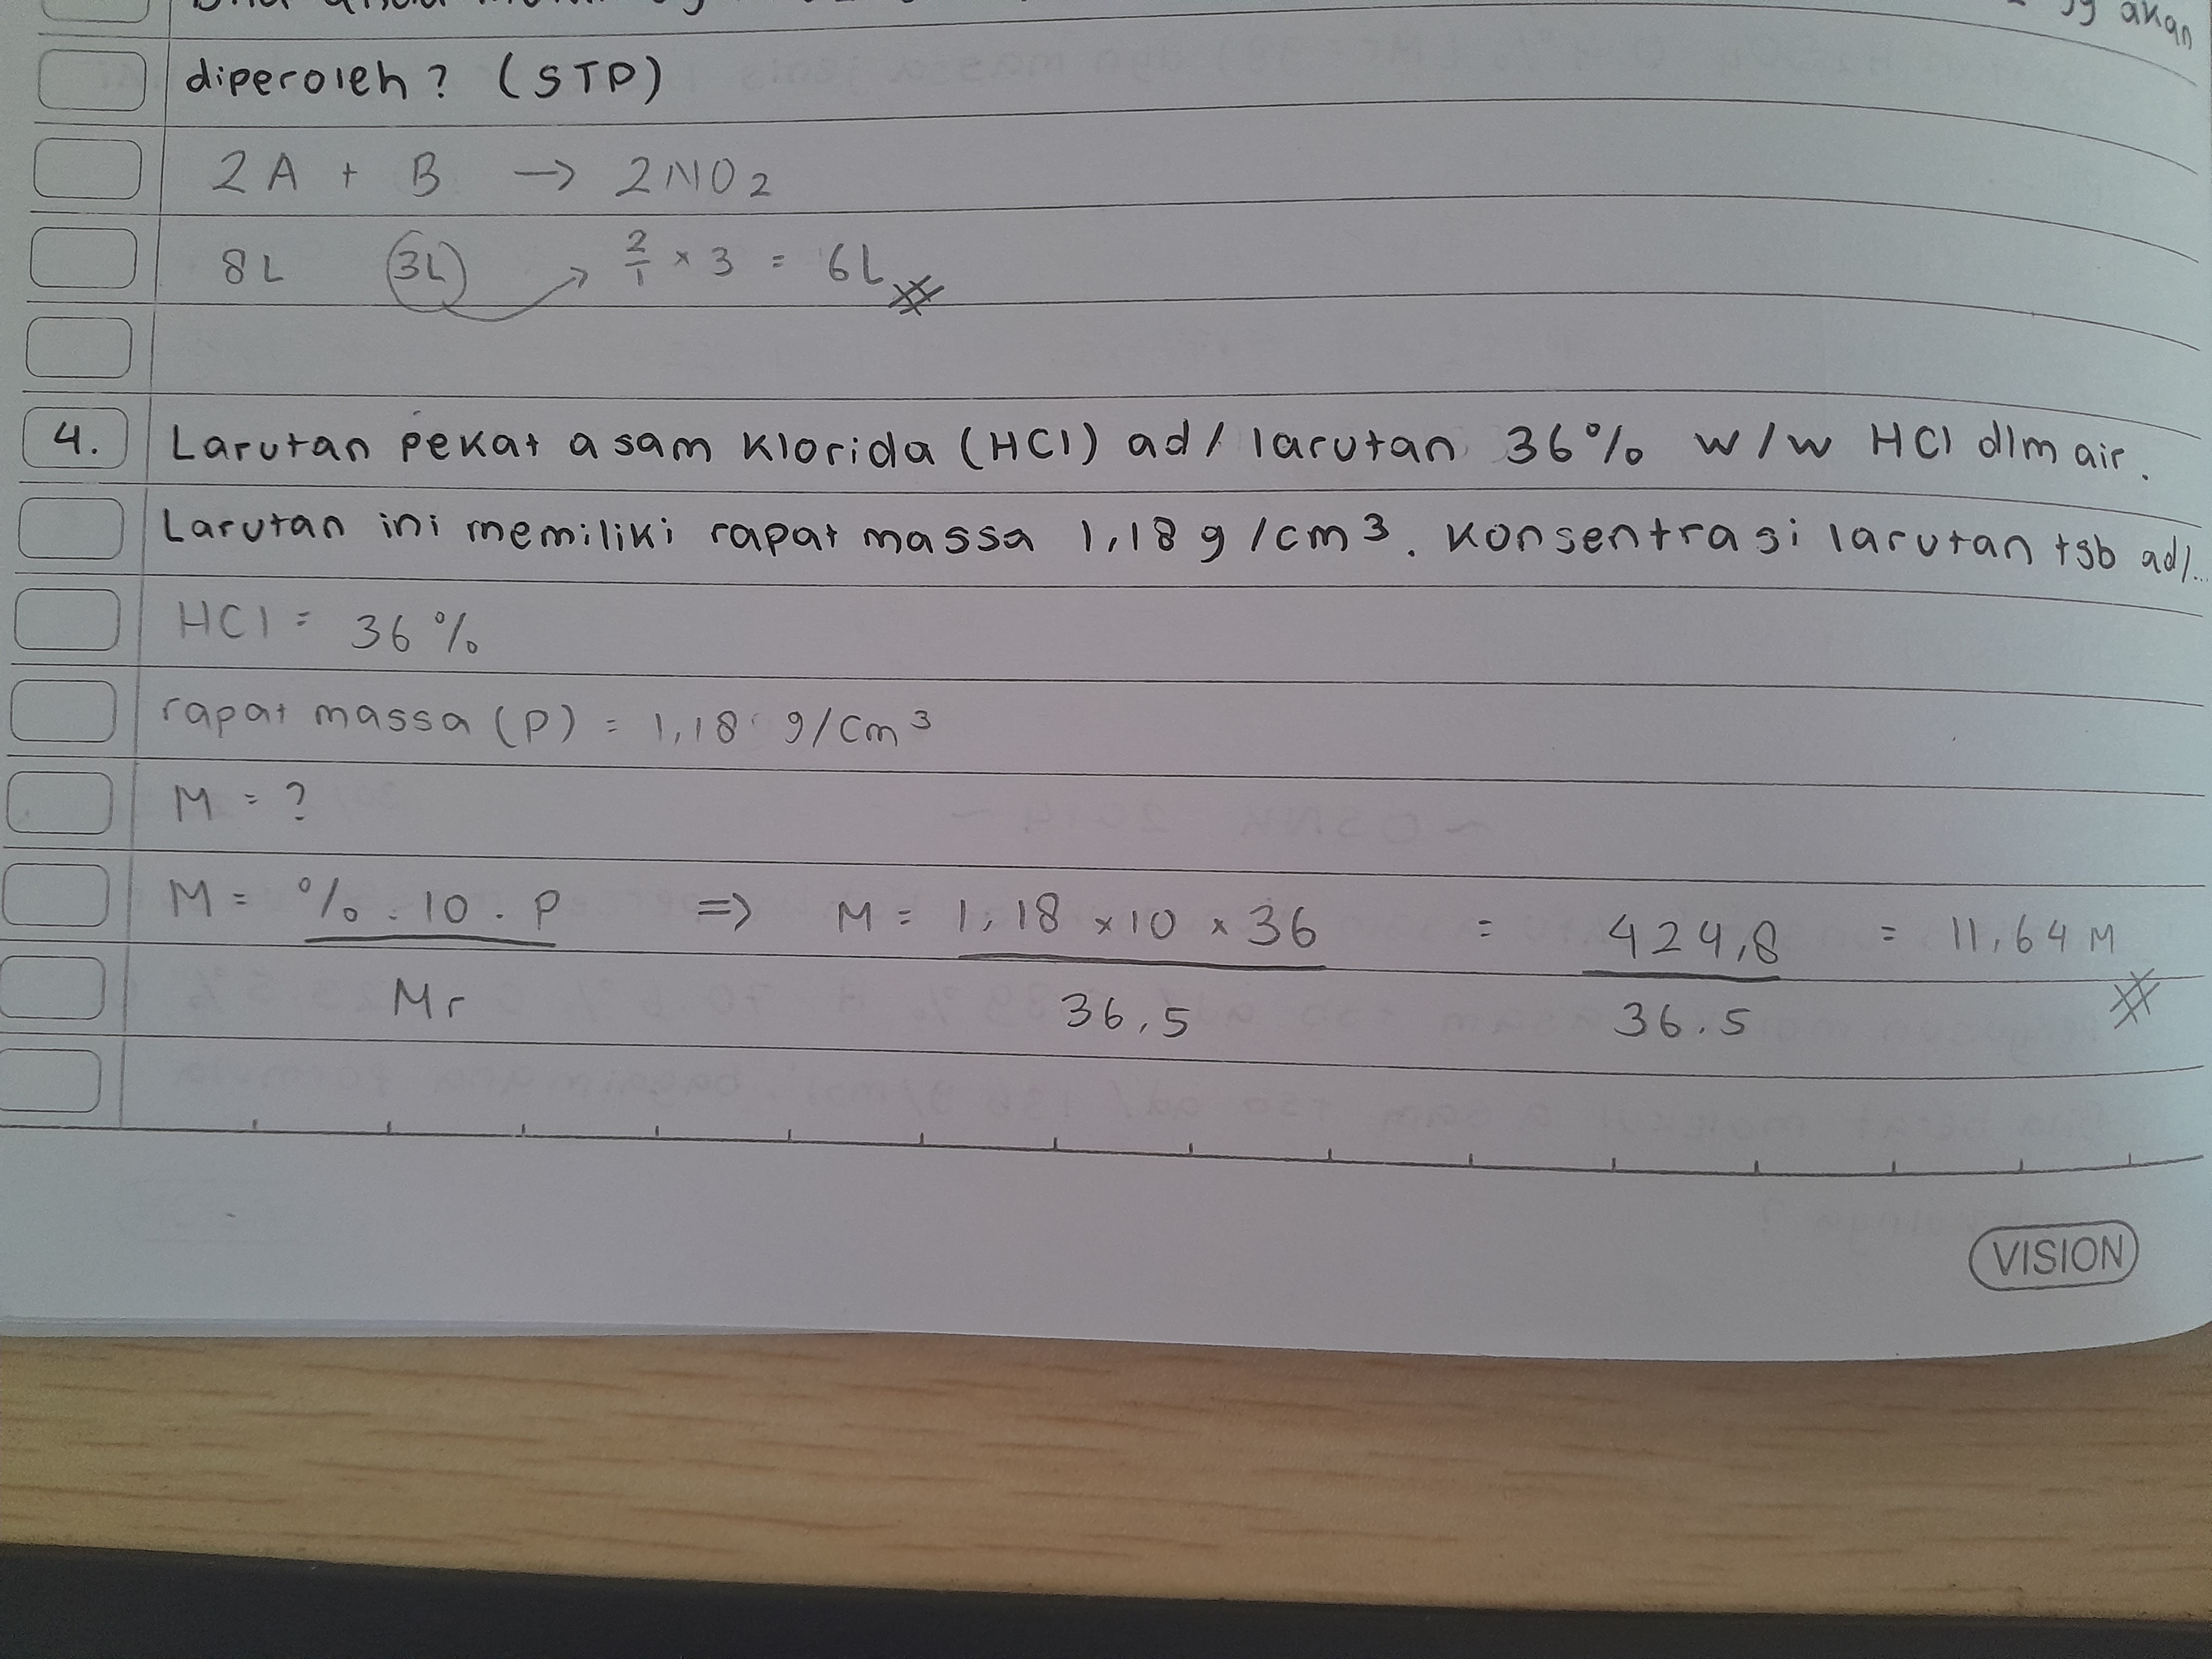 yg akan
diperoleh? (STP)
2A + B → 2NO2
8L 3L → 2/1 × 3 = 6L
4. Larutan pekat asam klorida (HCl) ad/ larutan 36% w/w HCl dlm air.
Larutan ini memiliki rapat massa 1,18 g/cm³. Konsentrasi larutan tsb ad/...
HCl = 36%
rapat massa (P) = 1,18 g/cm³
M = ?
M = % . 10 . P => M = 1,18 × 10 × 36 = 424,8 = 11,64 M
Mr 36,5 36.5
VISION